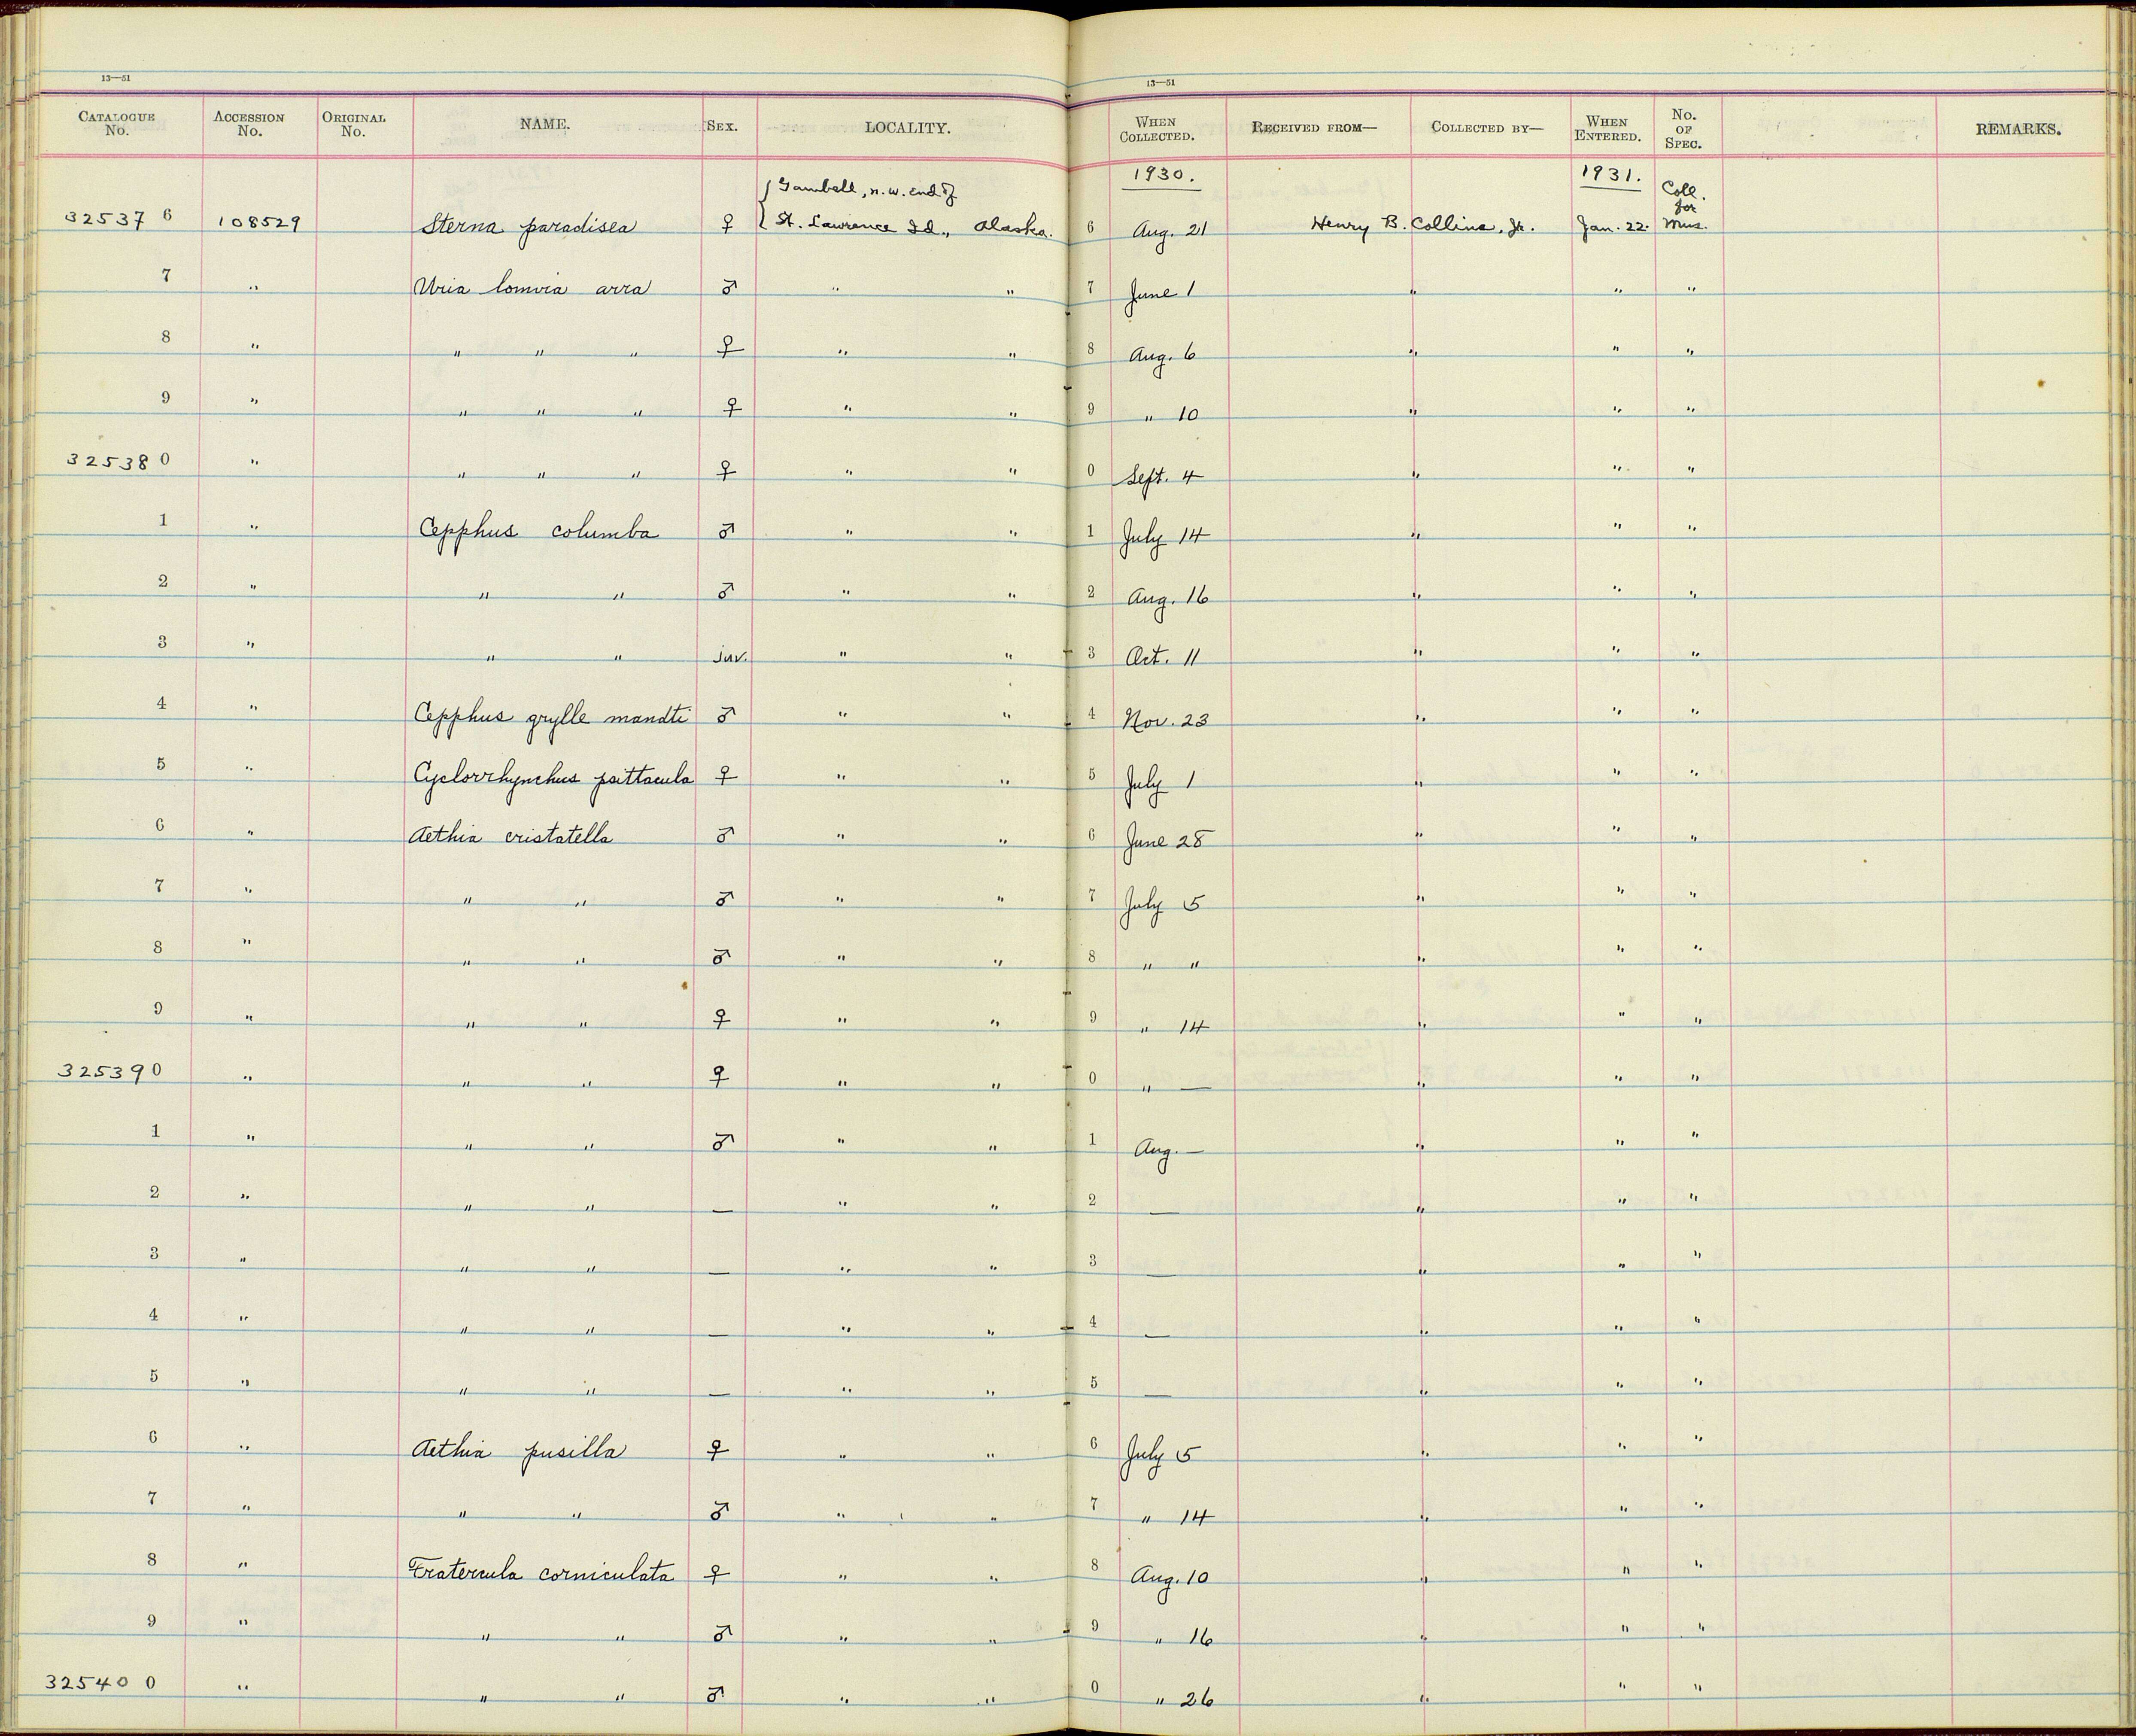 13—51 13—51
CATALOGUE No. ACCESSION No. ORIGINAL No. NAME. SEX. LOCALITY. WHEN COLLECTED. RECEIVED FROM— COLLECTED BY— WHEN ENTERED. No. OF SPEC. REMARKS.
{ Gambell, n.w. end of 1930. 1931. Coll. for
325376 108529 Sterna paradisea ♀ St. Lawrence Id., Alaska. 6 Aug. 21 Henry B. Collins, Jr. Jan. 22. Mus.
7 " Uria lomvia arra ♂ " " 7 June 1 " " "
8 " " " " ♀ " " 8 Aug. 6 " " "
9 " " " " ♀ " " 9 " 10 " " "
325380 " " " " ♀ " " 0 Sept. 4 " " "
1 " Cepphus columba ♂ " " 1 July 14 " " "
2 " " " ♂ " " 2 Aug. 16 " " "
3 " " " juv. " " 3 Oct. 11 " " "
4 " Cepphus grylle mandti ♂ " " 4 Nov. 23 " " "
5 " Cyclorrhynchus psittacula ♀ " " 5 July 1 " " "
6 " Aethia cristatella ♂ " " 6 June 28 " " "
7 " " " ♂ " " 7 July 5 " " "
8 " " " ♂ " " 8 " " " " "
9 " " " ♀ " " 9 " 14 " " "
325390 " " " ♀ " " 0 " — " " "
1 " " " ♂ " " 1 Aug. — " " "
2 " " " — " " 2 — " " "
3 " " " — " " 3 — " " "
4 " " " — " " 4 — " " "
5 " " " — " " 5 — " " "
6 " Aethia pusilla ♀ " " 6 July 5 " " "
7 " " " ♂ " " 7 " 14 " " "
8 " Fratercula corniculata ♀ " " 8 Aug. 10 " " "
9 " " " ♂ " " 9 " 16 " " "
325400 " " " ♂ " " 0 " 26 " " "